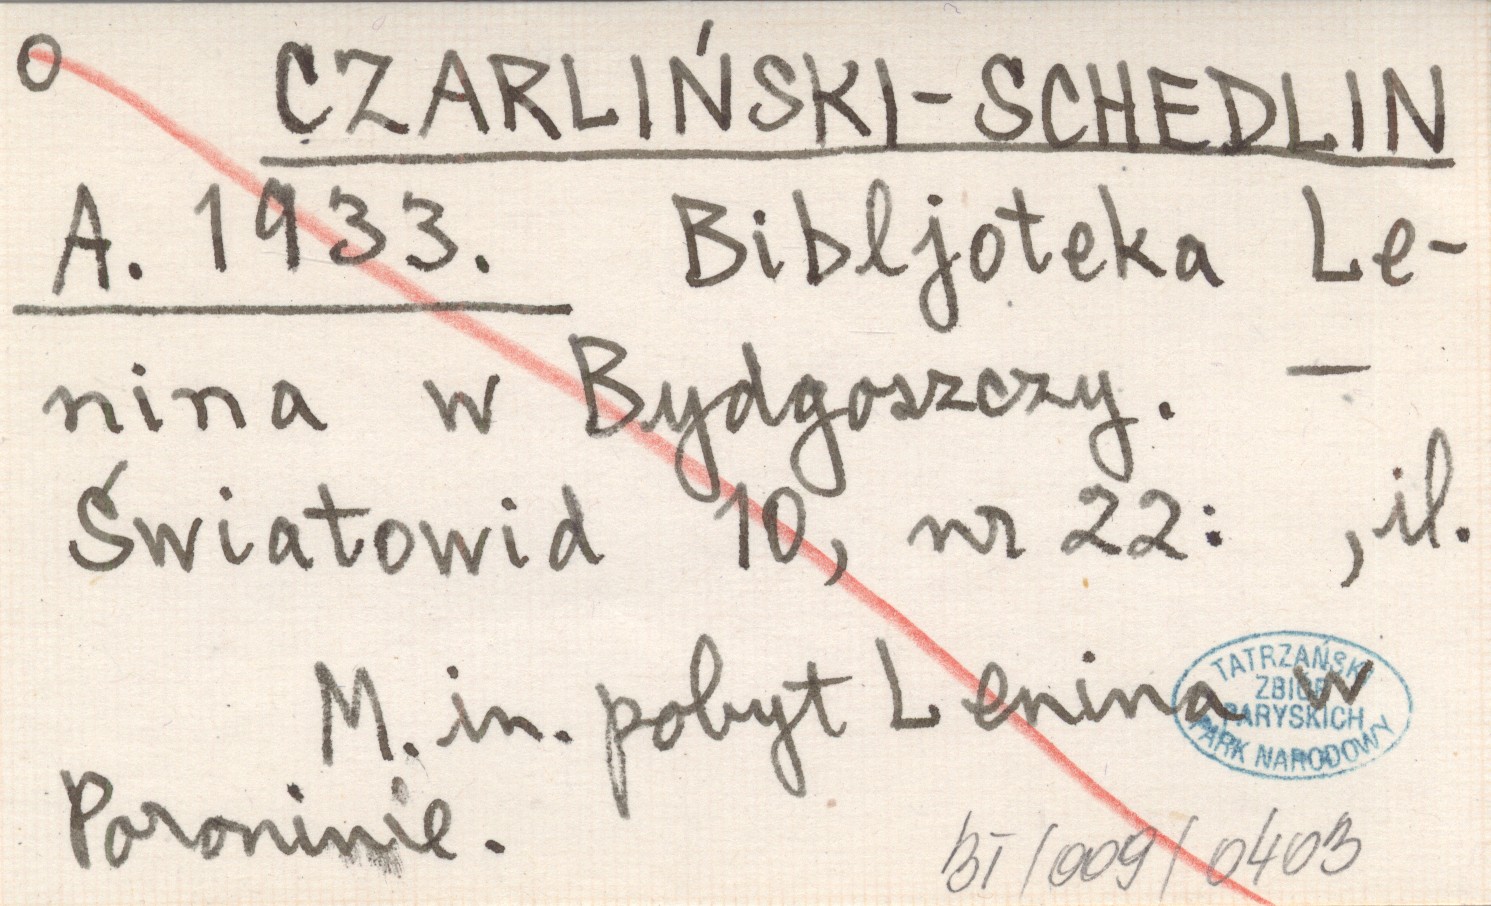 O CZARLIŃSKI-SCHEDLIN
A. 1933. Bibljoteka Le-
nina w Bydgoszczy. —
Światowid 10, nr 22: , il.
M. in. pobyt Lenina w
Poroninie.
TATRZAŃSKI
ZBIÓR
PARYSKICH
PARK NARODOWY
BI/009/0403